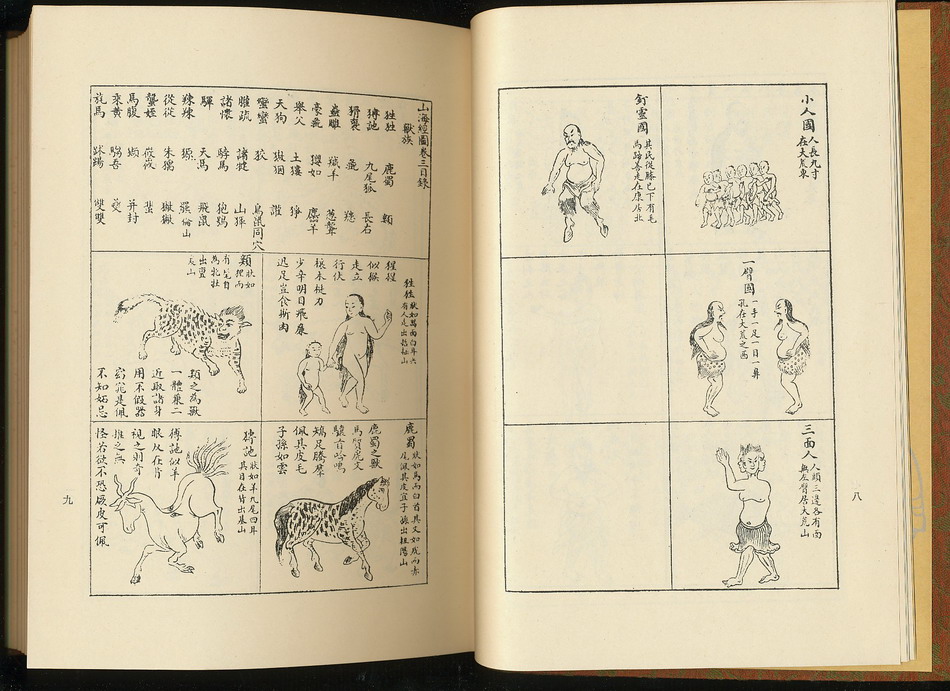 小人國
人長九寸
在大荒東
釘靈國
其民從膝已下有毛
馬蹄善走在康居北
一臂國
一手一足一目一鼻
孔在大荒之西
三面人
人頭三邊各有面
無左臂居大荒山
八
山海經圖卷三目錄
獸族
狌狌 鹿蜀 類
猼訑 九尾狐 長右
猾褢 彘 羬
蠱雕 羬羊 䓤聾
豪彘 玃如 麢羊
舉父 土螻 猙
天狗 讙
蠻蠻 狡 鳥鼠同穴
朧疏 諸犍 山𤟤
諸懷 駮馬 狍鴞
驒 天馬 飛鼠
辣辣 㺊 猲
從從 朱獳 獙獙
蠪姪 筱筱 蜚
馬腹 並封
乘黃 騶吾
旄馬 䟣踢 雙雙
狌狌
狀如禺而白耳
有人走出鵲山
猩猩
似猴
走立
行伏
櫰木挺力
少辛明目飛廉
迅足豈食斯肉
類
狀如
狸而
有髦自
為牝牡
出亶
爰山
類之為獸
一體兼二
近取諸身
用不假器
窈窕是佩
不知妬忌
鹿蜀
狀如馬而白首其文如虎而赤
尾佩其皮宜子孫出杻陽山
鹿蜀之獸
馬質虎文
驤首吟鳴
矯足騰羣
佩其皮毛
子孫如雲
猼訑
狀如羊九尾四耳
其目在背出基山
猼訑似羊
眼反在背
視之則奇
推之無
怪若欲不恐厥皮可佩
九